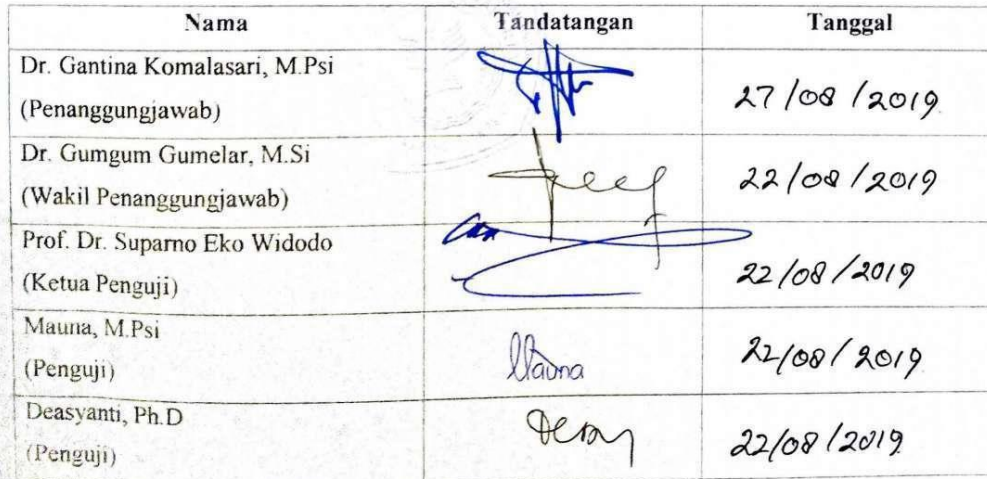 Nama Tandatangan Tanggal
Dr. Gantina Komalasari, M.Psi
(Penanggungjawab)
27/08/2019
Dr. Gumgum Gumelar, M.Si
(Wakil Penanggungjawab)
22/08/2019
Prof. Dr. Suparno Eko Widodo
(Ketua Penguji)
22/08/2019
Mauna, M.Psi
(Penguji)
Mauna
22/08/2019
Deasyanti, Ph.D
(Penguji)
22/08/2019